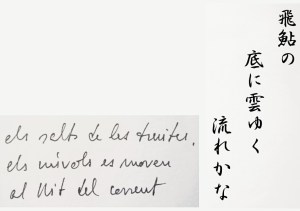 飛鮎の
底に雲ゆく
流れかな
els salts de les truites,
els núvols es mouen
al llit del corrent